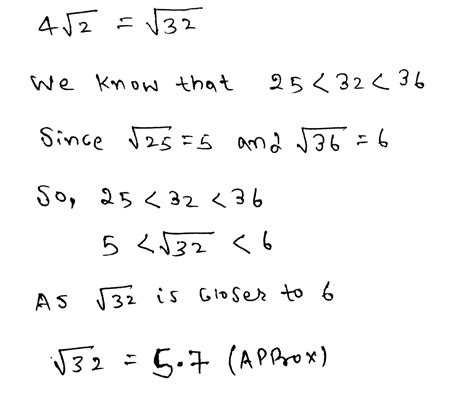 4√2 = √32
We know that 25 < 32 < 36
Since √25 = 5 and √36 = 6
So, 25 < 32 < 36
5 < √32 < 6
As √32 is closer to 6
√32 = 5.7 (APProx)